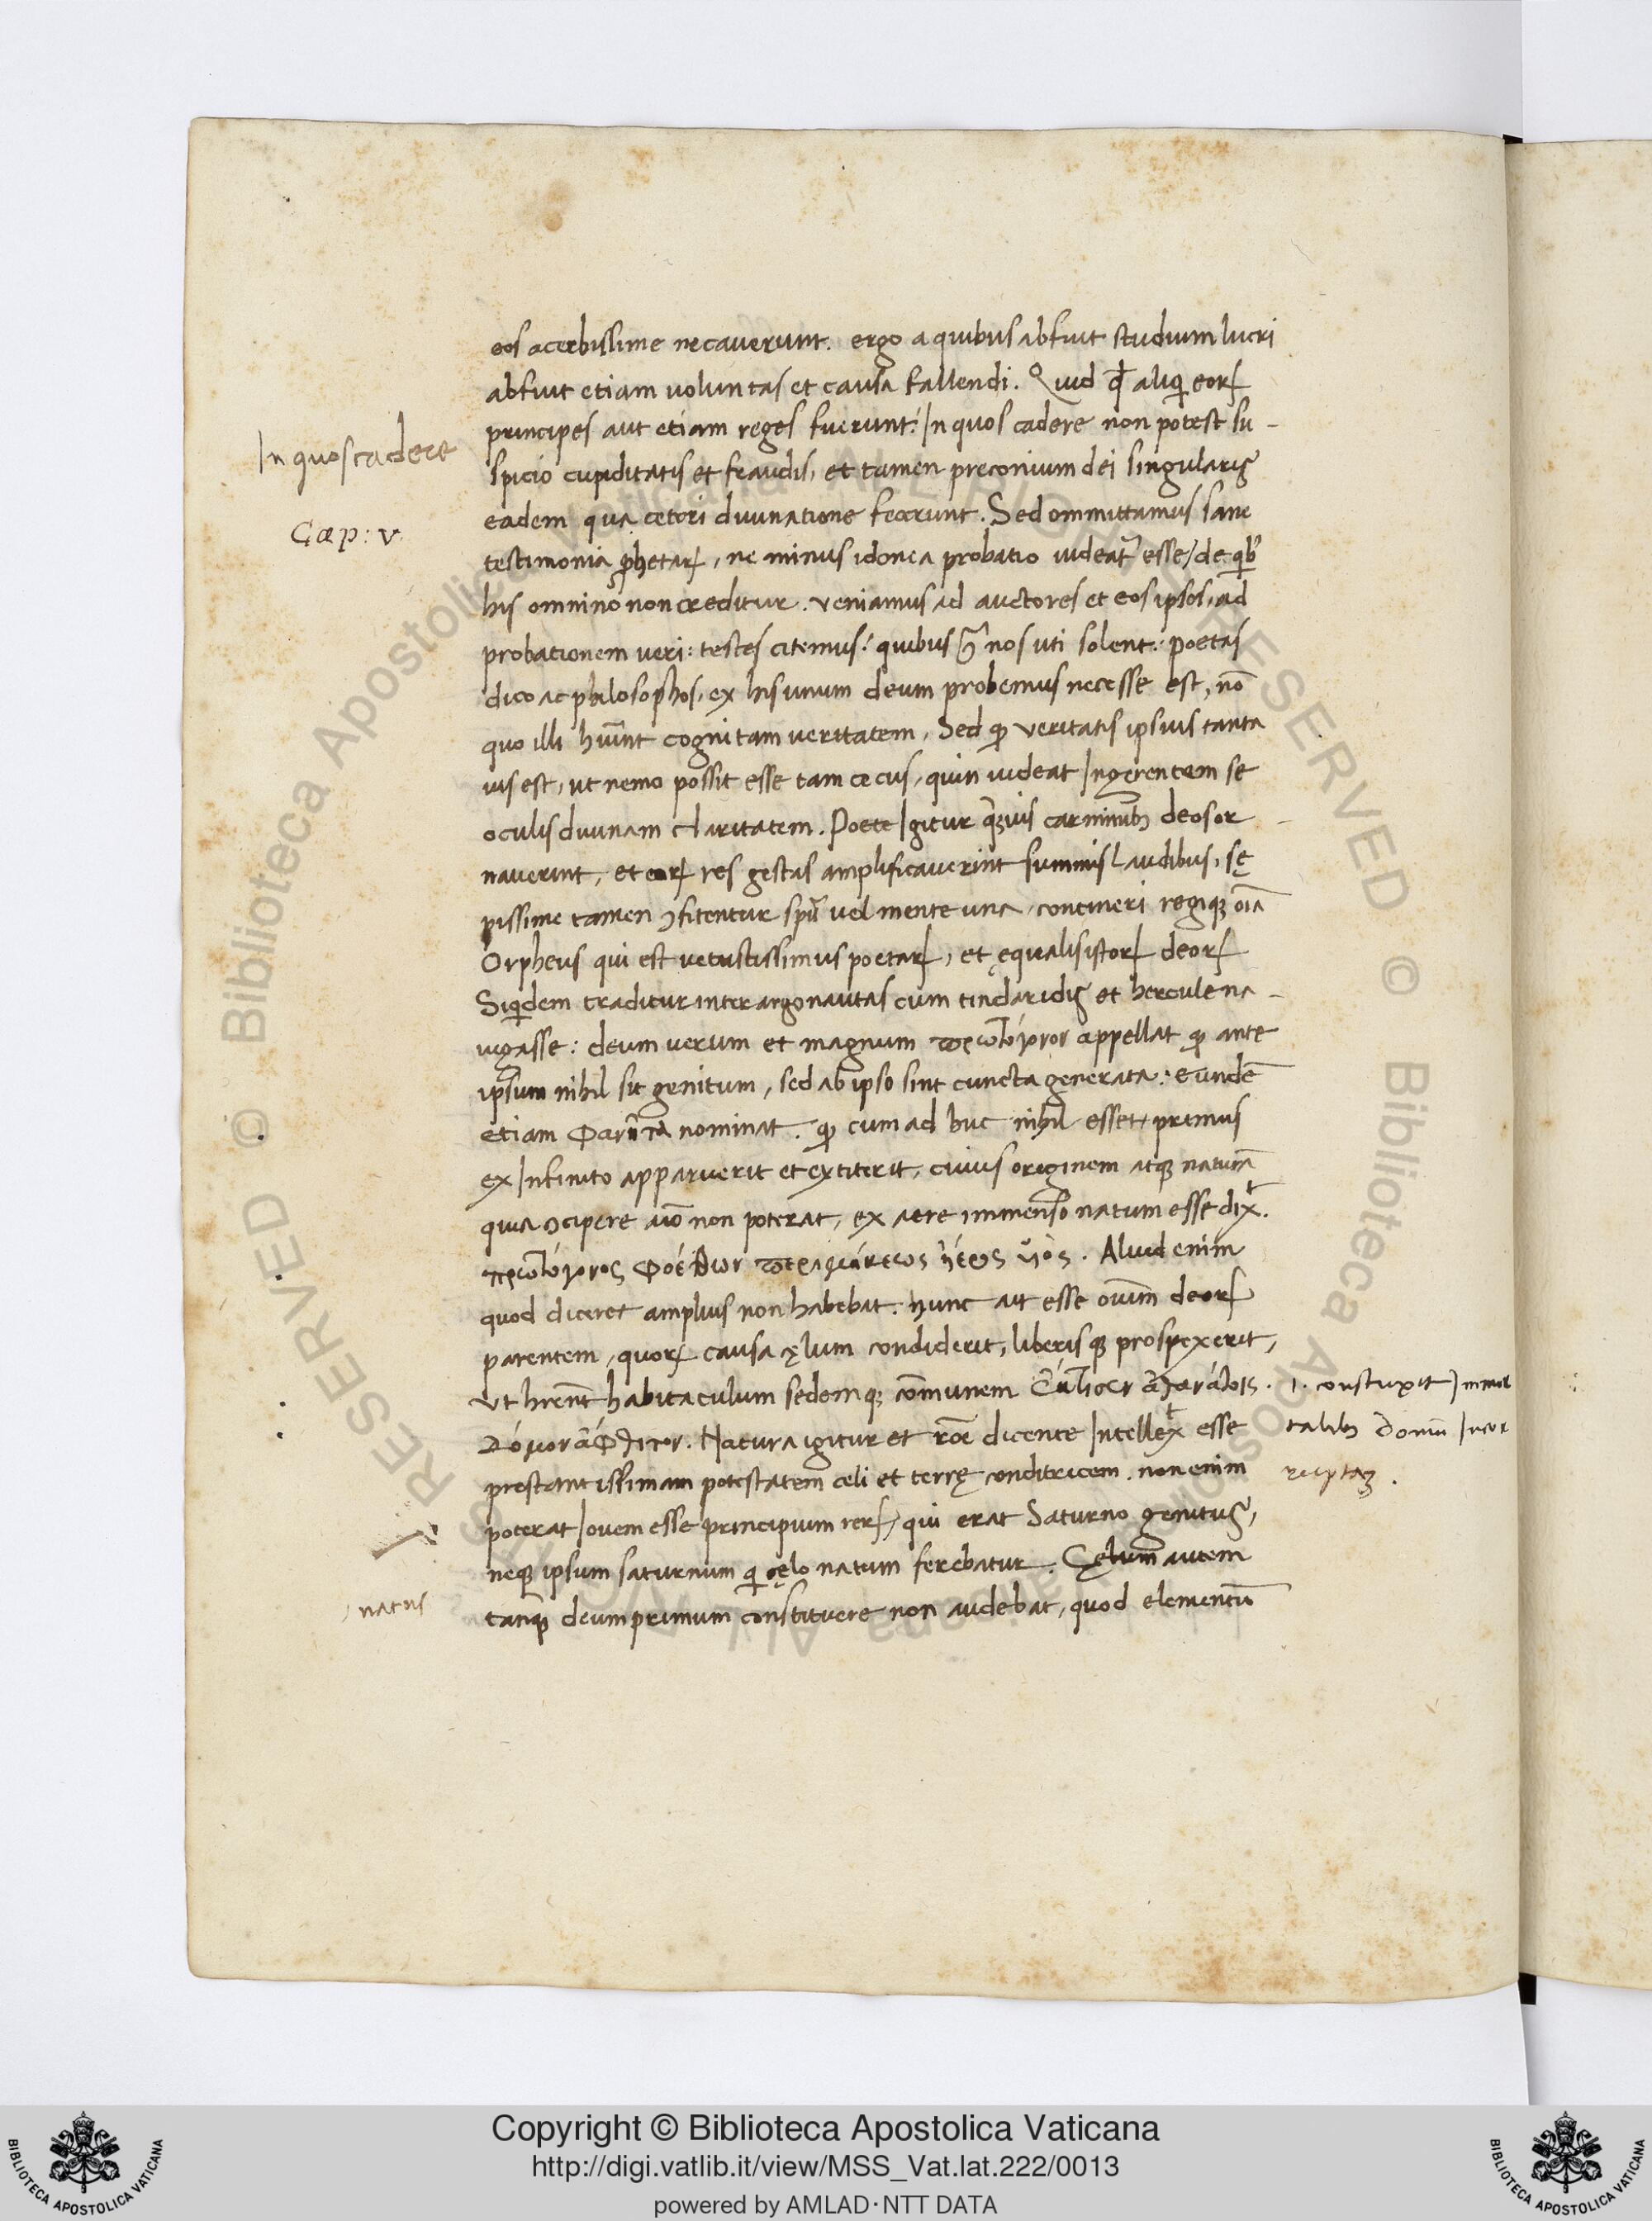 eos acerbissime necaverunt. ergo a quibus abfuit studium lucri
abfuit etiam voluntas et causa fallendi. Quid qđ aliq̇ eorꝝ
principes aut etiam reges fuerunt: In quos cadere non potest su-
In quos cadere
spicio cupiditatis et fraudis, et tamen preconium dei singularis
eadem qua ceteri divinatione fecerunt. Sed ommittamus sane
Cap: v
testimonia ꝓhetarꝝ, ne minus idonea probatio videat᷑ esse, de qib᷒
his omnino non creditur. veniamus ad auctores et eos ipsos, ad
probationem veri: testes citemus: quibus nos uti solent: poetas
dico ac philosophos, ex his unum deum probemus necesse est, nō
quo illi huīnt cognitam veritatem, Sed ꝙ veritatis ipsius tanta
vis est, ut nemo possit esse tam cecus, quin videat Ingerentem se
oculis divinam claritatem. Poete Igitur q̄ȝuis carminibꝫ deos or-
naverint, et eorꝝ res gestas amplificaverint summis laudibus, sę
pissime tamen ꝯfitentur spū vel mente una, contineri regiqꝫ oīa
Orpheus qui est vetustissimus poetarꝝ, et ęqualis istorꝝ deorꝝ
Siqdem traditur inter argonautas cum tindaridis et hercule na-
vigasse: deum verum et magnum πρωτόγονον appellat ꝙ ante
ipsum nihil sit genitum, sed ab ipso sint cuncta generata: eundē
etiam Φανῆτα nominat. ꝙ cum ad huc nihil esset, primus
ex Infinito apparuerit et extiterit, cuius originem atqꝫ naturā
quia ꝯcipere aīo non poterat, ex aere immenso natum esse dixt.
πρωτόγονος Φαέθων ἠέρος ὑιός. Aliud enim
quod diceret amplius non habebat. hunc ait esse oīum deorꝝ
parentem, quorꝝ causa cęlum condiderit, liberisqꝫ prospexerit,
Vt hrēnt habitaculum sedemqꝫ cōmunem ἀθανάτοις. 1. construxit Immor
δόμον ἄφθιτον. Natura igitur et rōe dicente Intellext esse
talibꝫ Domū Incor
prestantissimam potestatem celi et terrę conditricem. non enim
ruptaꝫ.
poterat Iovem esse principium rerꝝ, qui erat Saturno genitus,
neqꝫ ipsum saturnum q̇ cęlo natum ferebatur. Cęlum autem
, natus
tanqꝫ deum primum constituere non audebat, quod elementū
Copyright © Biblioteca Apostolica Vaticana
http://digi.vatlib.it/view/MSS_Vat.lat.222/0013
powered by AMLAD·NTT DATA